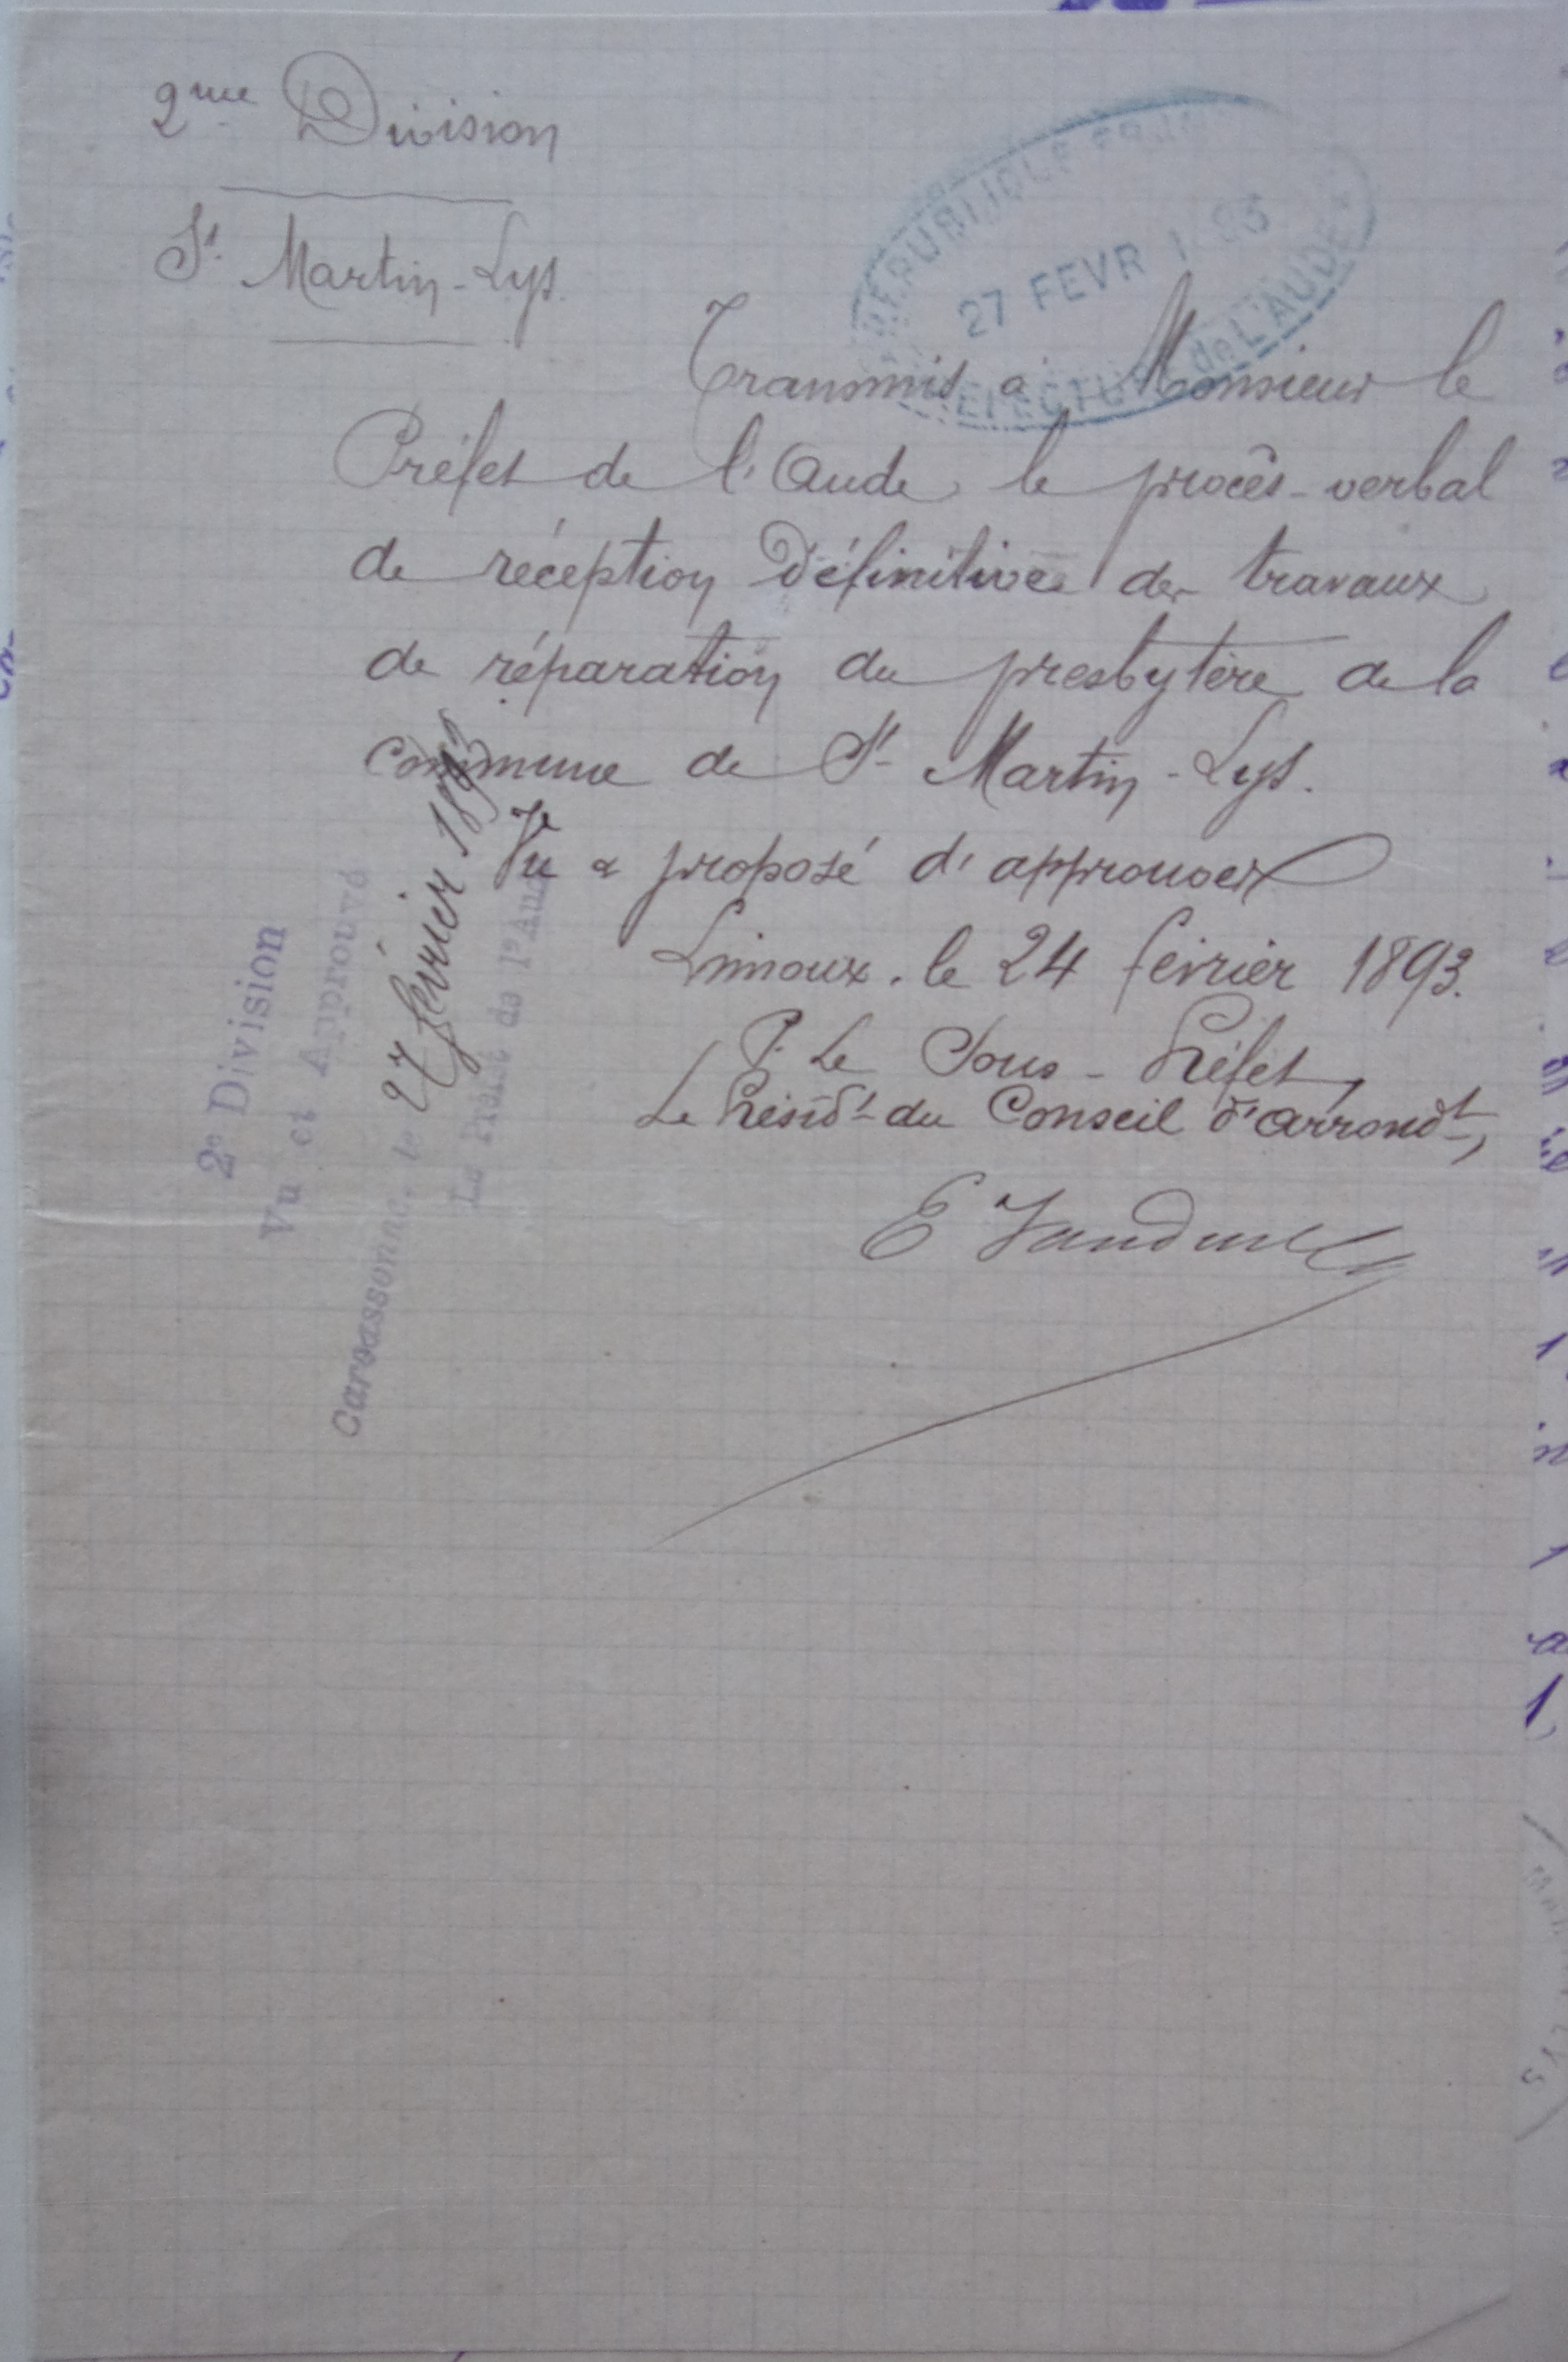 2me Division
St Martin-Lys.
RÉPUBLIQUE
27 FEVR
de L'AUDE
Transmis à Monsieur le
Préfet de l'Aude le procès-verbal
de réception définitive des travaux
de réparation du presbytère de la
commune de St Martin-Lys.
Vu & proposé d'approuver
Limoux, le 24 février 1893.
P. Le Sous-Préfet,
Le Présidt du Conseil d'arrondt,
2e Division
Vu et Approuvé
Carcassonne, le 27 février 1893
Le Préfet de l'Aude